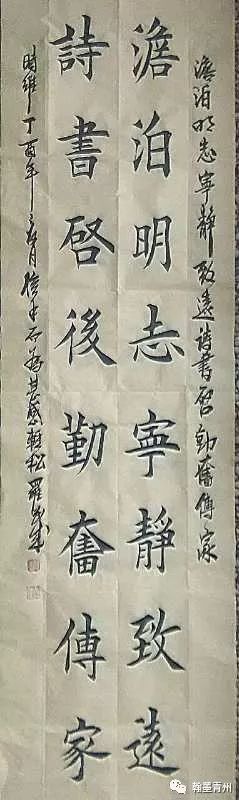 澹泊明志寧靜致遠詩書啓勤奮傳家
澹泊明志寧靜致遠
詩書啓後勤奮傳家
時維丁酉年 月 松 羅
翰墨青州